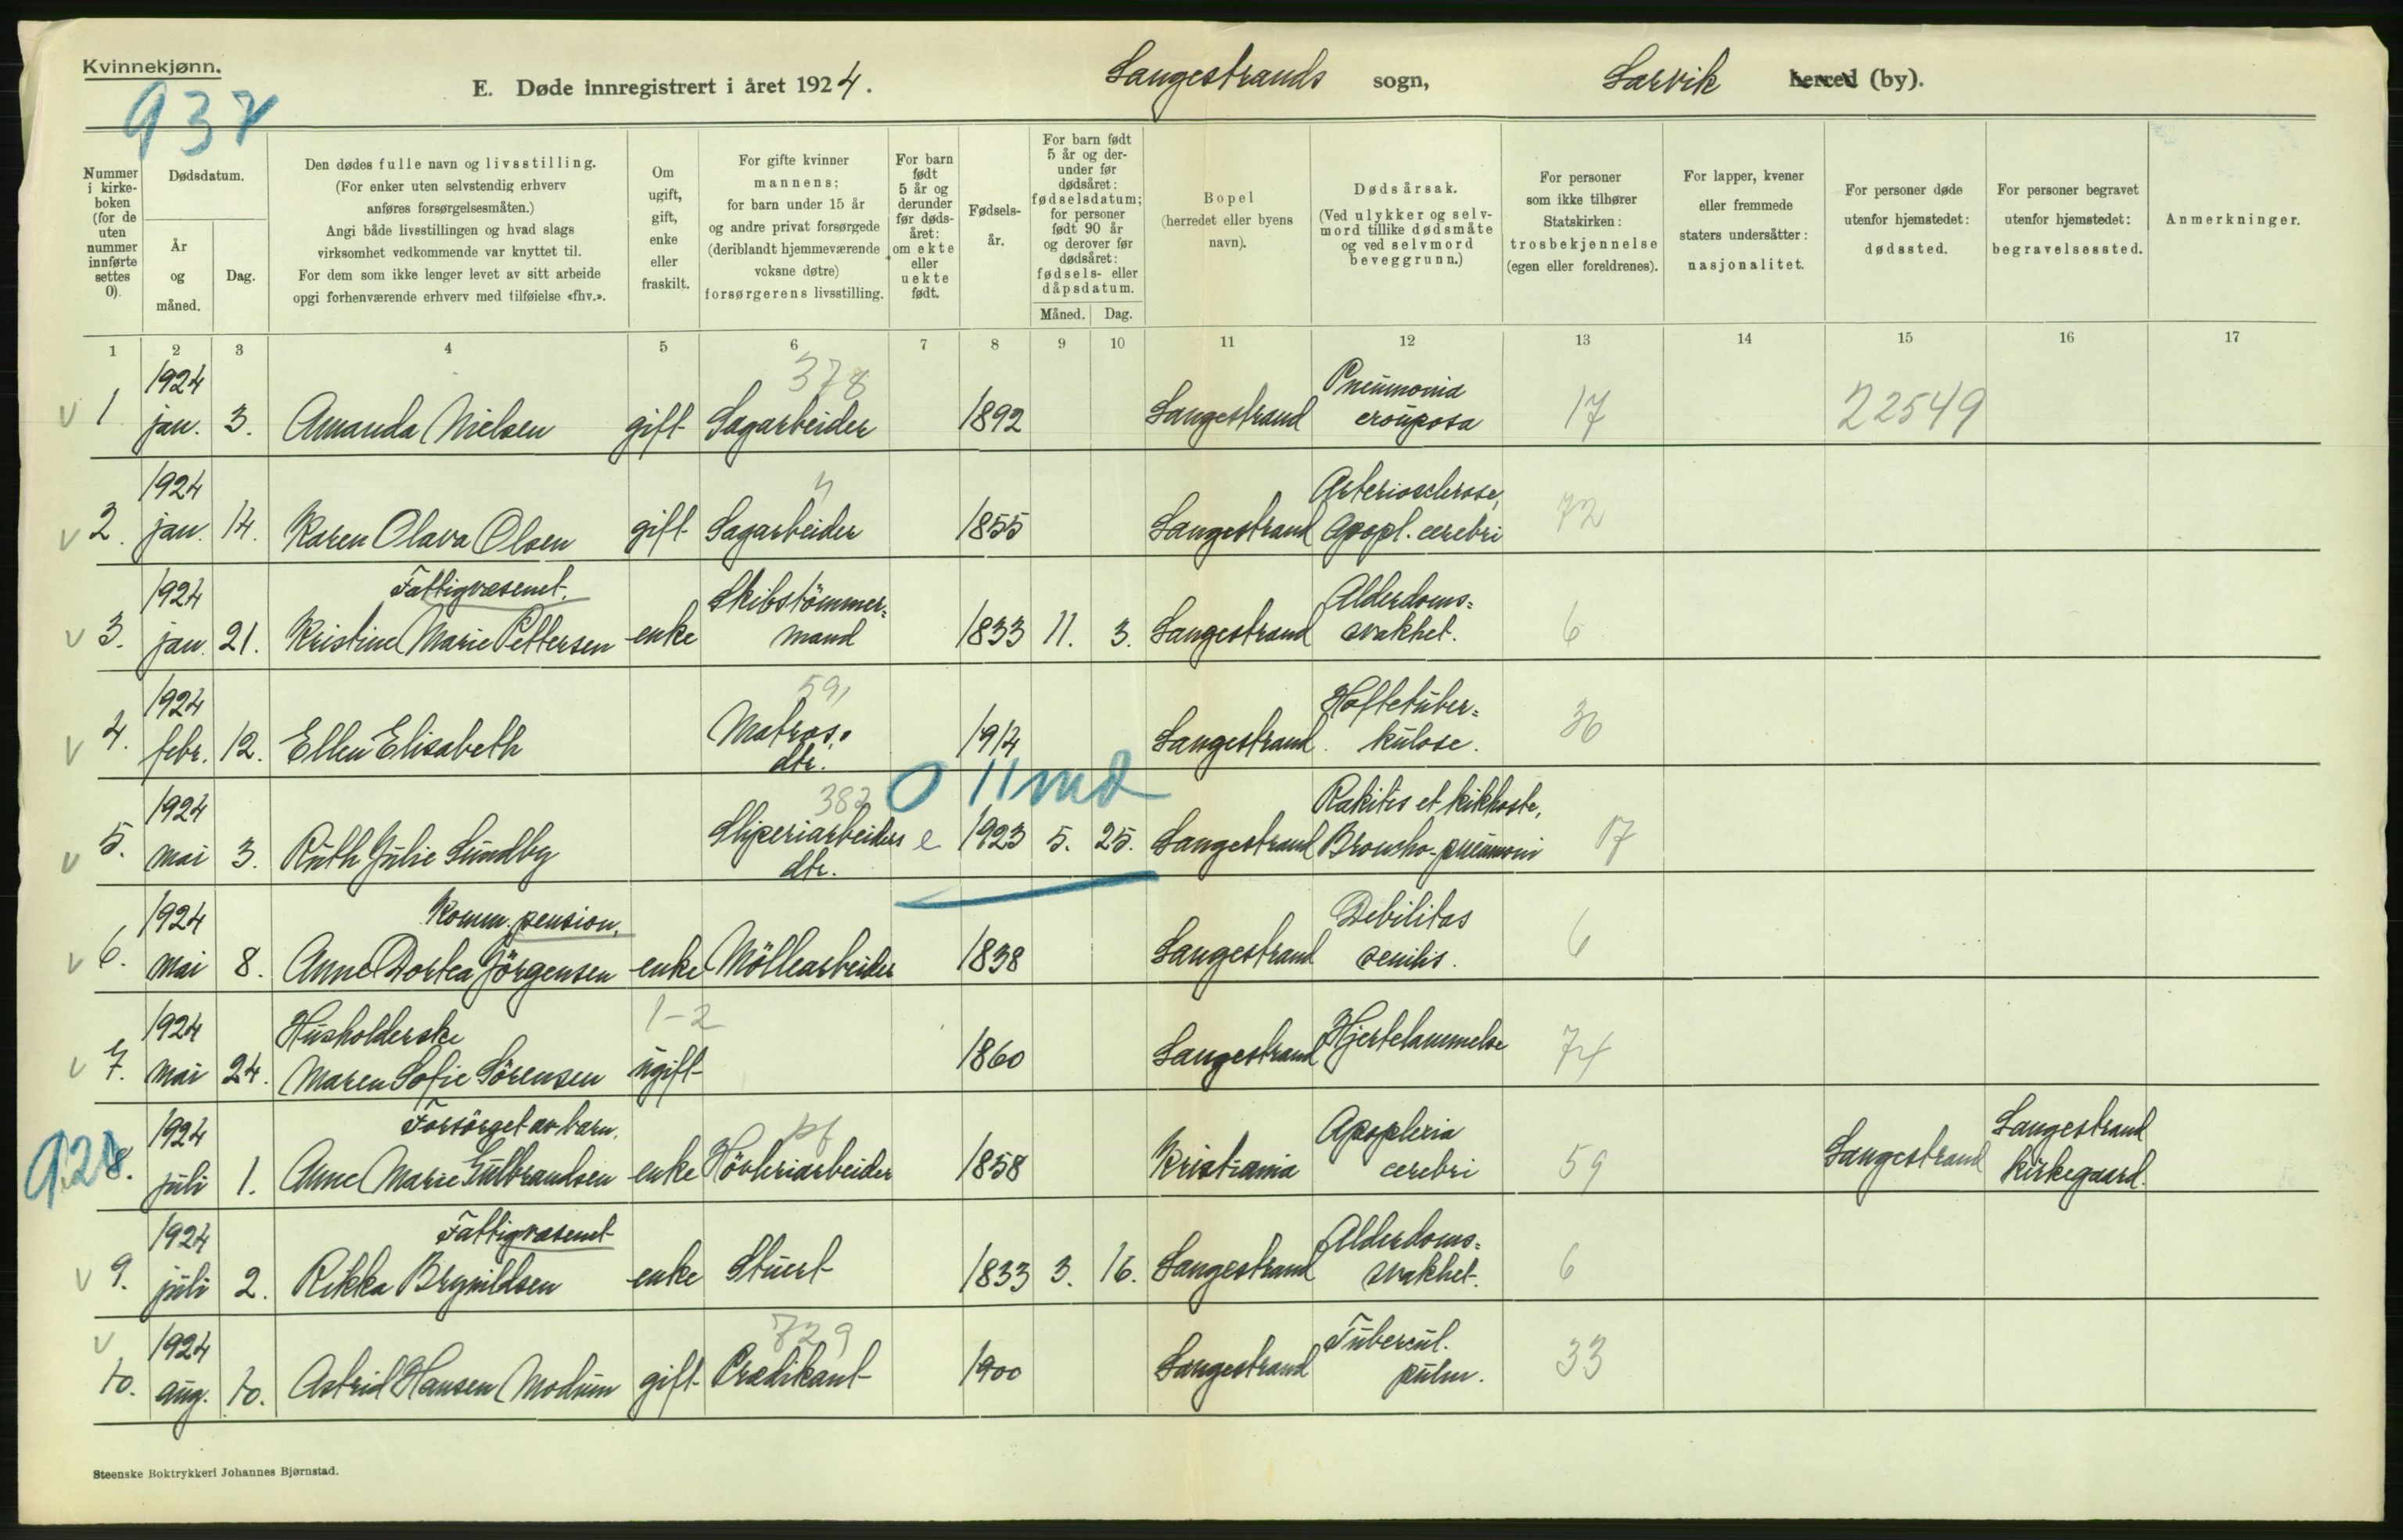 Kvinnekjønn.
937
E. Døde innregistrert i året 1924.
Langestrands sogn,
Larvik herred (by).
Nummer i kirke-boken (for de uten nummer innførte settes 0).
Dødsdatum.
År og måned.
Dag.
Den dødes fulle navn og livsstilling.
(For enker uten selvstendig erhverv
anføres forsørgelsesmåten.)
Angi både livsstillingen og hvad slags
virksomhet vedkommende var knyttet til.
For dem som ikke lenger levet av sitt arbeide
opgi forhenværende erhverv med tilføielse «fhv.».
Om ugift, gift, enke eller fraskilt.
For gifte kvinner
mannens;
for barn under 15 år
og andre privat forsørgede
(deriblandt hjemmeværende
voksne døtre)
forsørgerens livsstilling.
For barn født 5 år og derunder før døds-året: om ekte eller uekte født.
Fødsels-år.
For barn født
5 år og der-
under før
dødsåret:
fødselsdatum;
for personer
født 90 år
og derover før
dødsåret:
fødsels- eller
dåpsdatum.
Måned.
Dag.
Bopel
(herredet eller byens
navn).
Dødsårsak.
(Ved ulykker og selv-
mord tillike dødsmåte
og ved selvmord
beveggrunn.)
For personer
som ikke tilhører
Statskirken:
trosbekjennelse
(egen eller foreldrenes).
For lapper, kvener
eller fremmede
staters undersåtter:
nasjonalitet.
For personer døde
utenfor hjemstedet:
dødssted.
For personer begravet
utenfor hjemstedet:
begravelsessted.
Anmerkninger.
1 2 3 4 5 6 7 8 9 10 11 12 13 14 15 16 17
1924 378 Pneumonia
v 1 jan. 3. Amanda Nielsen gift Sagarbeider 1892 Langestrand crouposa 17 22549
1924 " Arteriosclerose,
v 2. jan. 14. Karen Olava Olsen gift Sagarbeider 1855 Langestrand Apopl. cerebri 72
1924 Fattigvæsenet. Skibstömmer= Alderdoms=
v 3. jan. 21. Kristine Marie Pettersen enke mand 1833 11. 3. Langestrand svakhet. 6
1924 591 Hoftetuber=
v 4. febr. 12. Ellen Elisabeth Matros. 1914 Langestrand. kulose. 30
dtr.
0 11 md
1924 382 Rakitis et kikhoste,
v 5. mai 3. Ruth Julie Sundby Sliperiarbeiders e 1923 5. 25. Langestrand Broncho-pneumoni 17
dtr.
1924 Komm. pension. Debilitas
v 6. mai 8. Anne Dortea Jörgensen enke Möllearbeider 1838 Langestrand senilis. 6
1924 Husholderske 1-2
v 7. mai 24. Maren Sofie Sörensen ugift 1860 Langestrand Hjertelammelse 74
1924 Forsörget av barn. pf Apoplexia Langestrand
920 8. juli 1. Anne Marie Gulbrandsen enke Hövleriarbeider 1858 Kristiania cerebri 59 Langestrand kirkegaard.
1924 Fattigvæsenet Alderdoms=
v 9. juli 2. Rikka Brynildsen enke Stuert 1833 3. 16. Langestrand svakhet. 6
v 1924 729 Tubercul.
10. aug. 10. Astrid Hansen Modum gift Prædikant 1900 Langestrand pulm. 33
Steenske Boktrykkeri Johannes Bjørnstad.